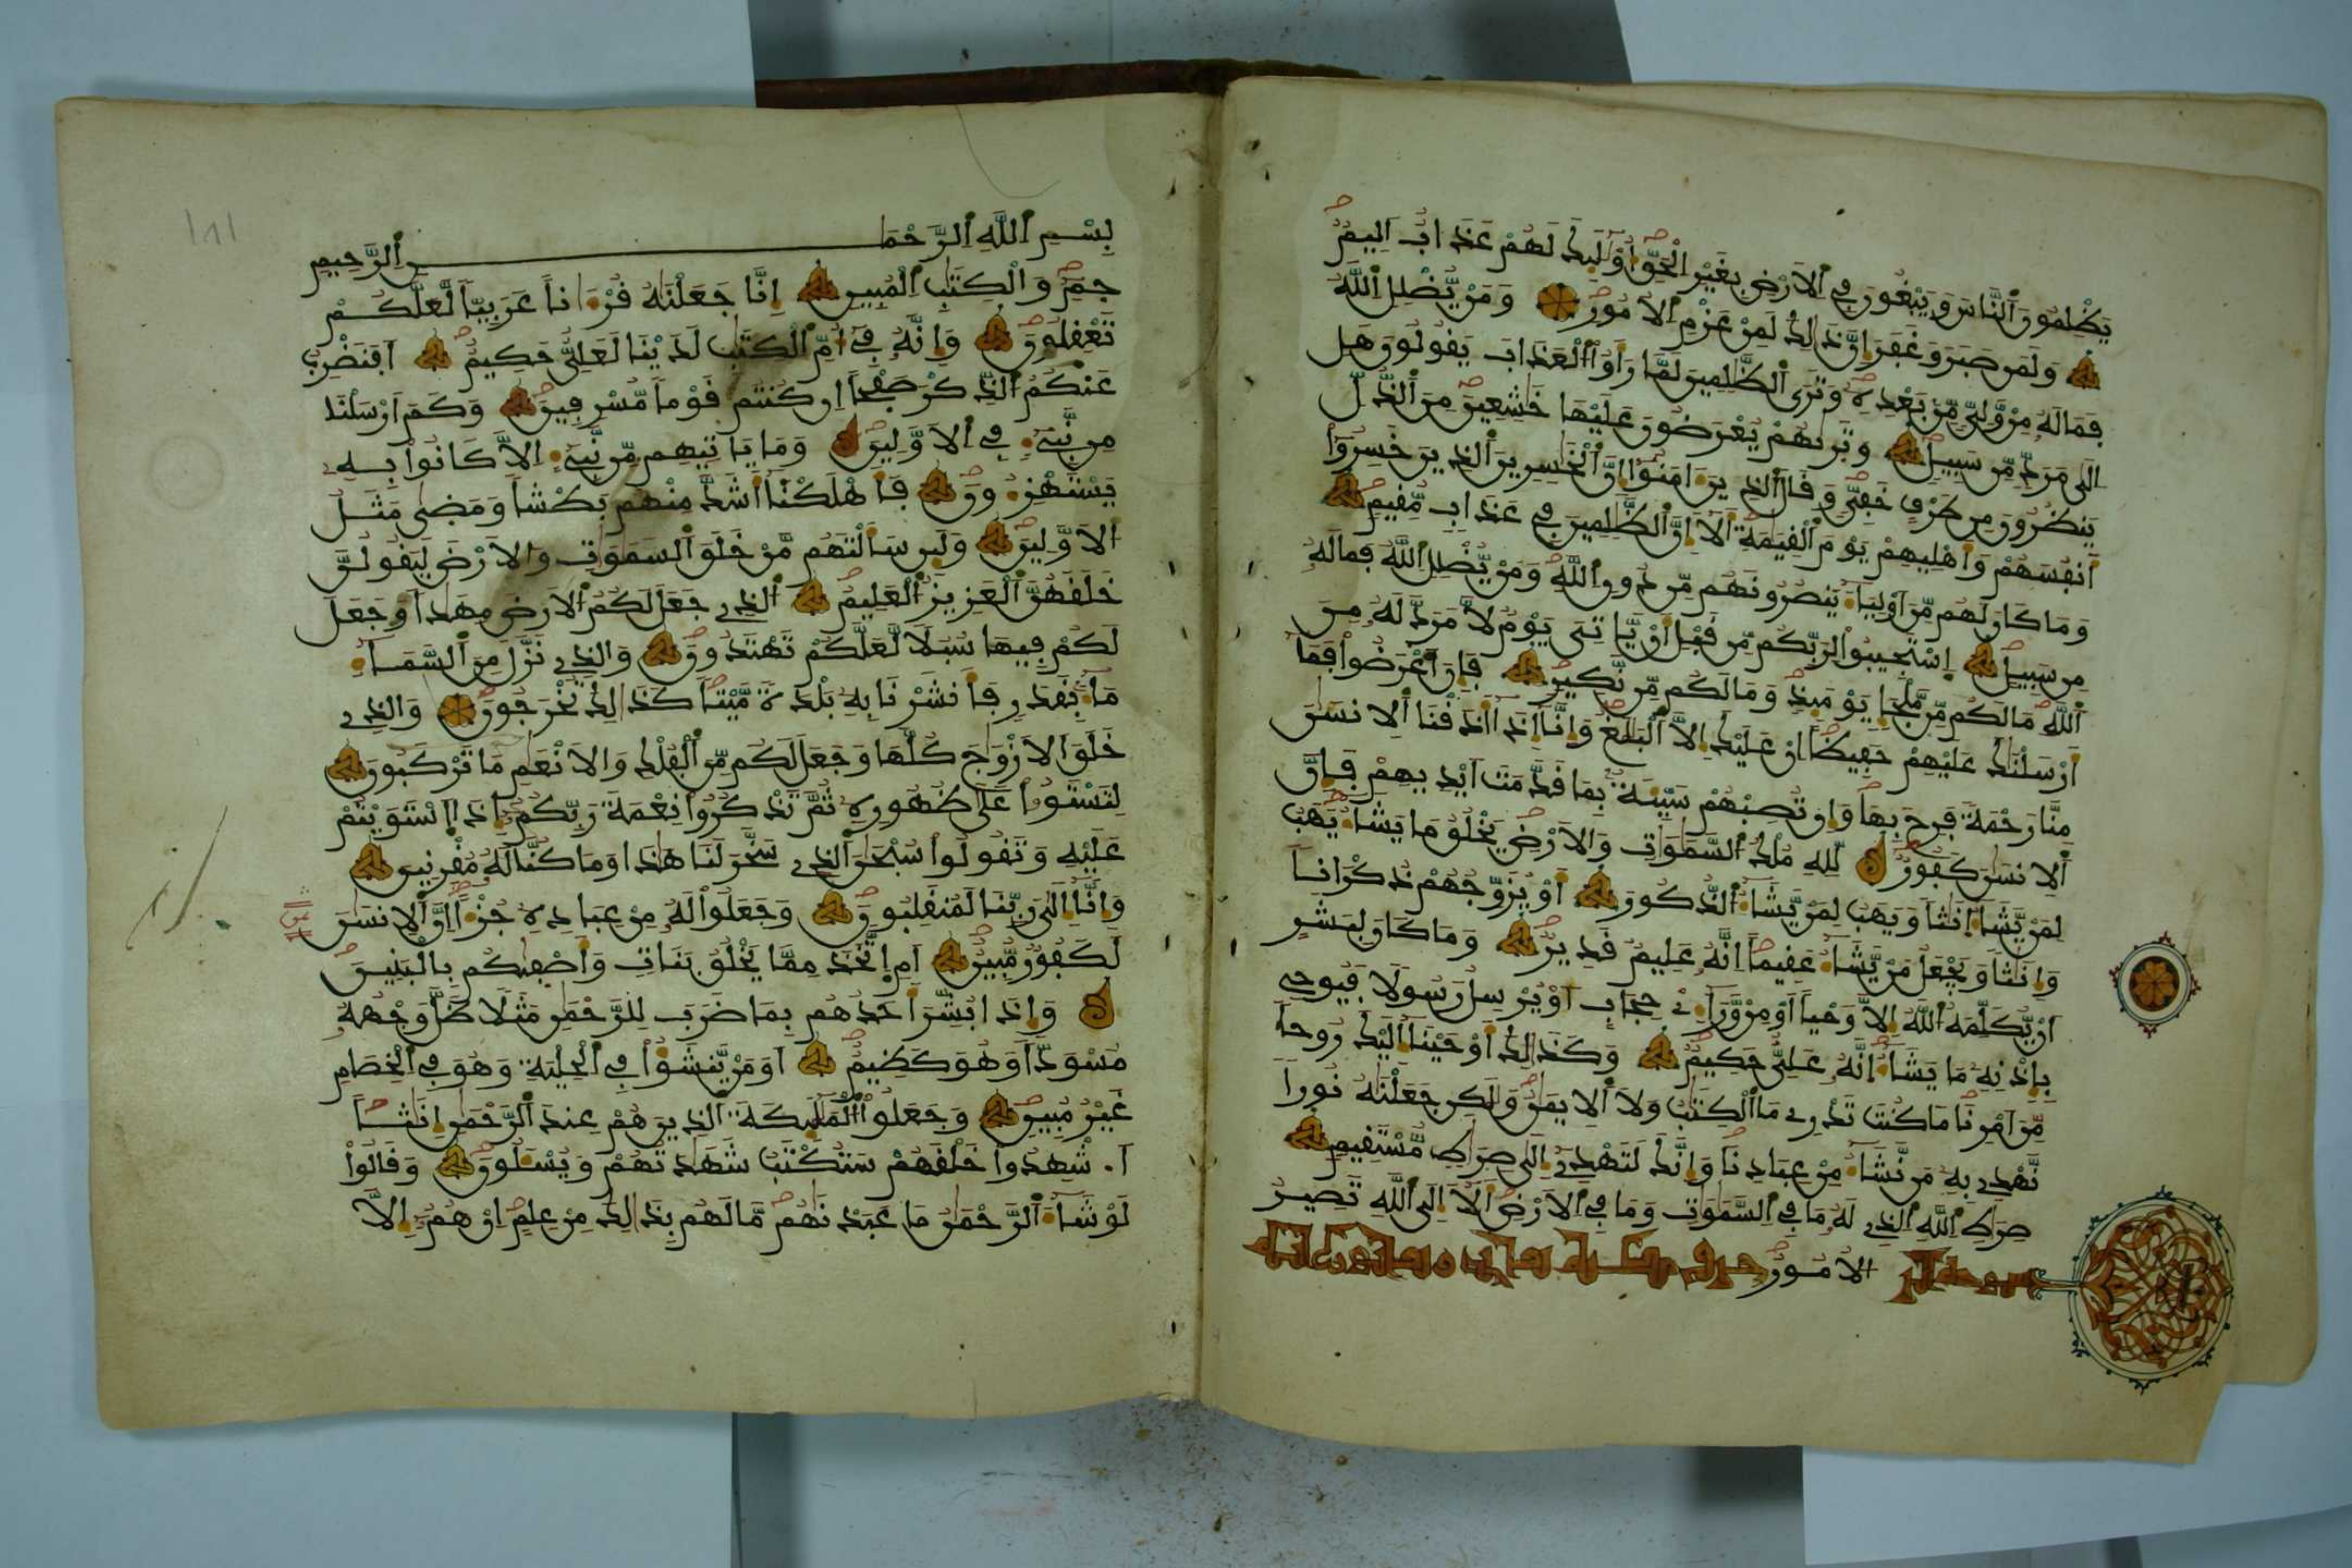 يَظْلِمُونَ ٱلنَّاسَ وَيَبْغُونَ فِي ٱلَارْضِ بِغَيْرِ ٱلْحَقِّ أُوْلَٰٓئِكَ لَهُمْ عَذَابٌ اَلِيمٌ
وَلَمَن صَبَرَ وَغَفَرَ إِنَّ ذَٰلِكَ لَمِنْ عَزْمِ ٱلُامُورِ وَمَنْ يُّضْلِلِ ٱللَّهُ
فَمَا لَهُۥ مِنْ وَّلِيٍّ مِّنۢ بَعْدِهِۦ وَتَرَى ٱلظَّٰلِمِينَ لَمَّا رَأَوُاْ ٱلْعَذَابَ يَقُولُونَ هَل
اِلَىٰ مَرَدٍّ مِّن سَبِيلٍ وَتَرَىٰهُمْ يُعْرَضُونَ عَلَيْهَا خَٰشِعِينَ مِنَ ٱلذُّلِّ
يَنظُرُونَ مِن طَرْفٍ خَفِيٍّ وَقَالَ ٱلذِينَ ءَامَنُوٓاْ إِنَّ ٱلْخَٰسِرِينَ ٱلذِينَ خَسِرُوٓاْ
أَنفُسَهُمْ وَأَهْلِيهِمْ يَوْمَ ٱلْقِيَٰمَةِ أَلَآ إِنَّ ٱلظَّٰلِمِينَ فِي عَذَابٍ مُّقِيمٍ
وَمَا كَانَ لَهُم مِّنَ اَوْلِيَآءَ يَنصُرُونَهُم مِّن دُونِ ٱللَّهِ وَمَنْ يُّضْلِلِ ٱللَّهُ فَمَا لَهُۥ
مِن سَبِيلٍ اِسْتَجِيبُواْ لِرَبِّكُم مِّن قَبْلِ أَنْ يَّاتِيَ يَوْمٌ لَّا مَرَدَّ لَهُۥ مِنَ
ٱللَّهِ مَا لَكُم مِّن مَّلْجَإٍ يَوْمَئِذٍ وَمَا لَكُم مِّن نَّكِيرٍ فَإِنَ اَعْرَضُواْ فَمَآ
أَرْسَلْنَٰكَ عَلَيْهِمْ حَفِيظًا اِنْ عَلَيْكَ إِلَّا ٱلْبَلَٰغُ وَإِنَّآ إِذَآ أَذَقْنَا ٱلِانسَٰنَ
مِنَّا رَحْمَةً فَرِحَ بِهَا وَإِن تُصِبْهُمْ سَيِّئَةٌۢ بِمَا قَدَّمَتَ اَيْدِيهِمْ فَإِنَّ
ٱلِانسَٰنَ كَفُورٌ لِّلهِ مُلْكُ ٱلسَّمَٰوَٰتِ وَٱلَارْضِ يَخْلُقُ مَا يَشَآءُ يَهَبُ
لِمَنْ يَّشَآءُ إِنَٰثًا وَيَهَبُ لِمَنْ يَّشَآءُ ٱلذُّكُورَ أَوْ يُزَوِّجُهُمْ ذُكْرَانًا
وَإِنَٰثًا وَيَجْعَلُ مَنْ يَّشَآءُ عَقِيمًا اِنَّهُۥ عَلِيمٌ قَدِيرٌ وَمَا كَانَ لِبَشَرٍ
اَنْ يُّكَلِّمَهُ ٱللَّهُ إِلَّا وَحْيًا اَوْ مِنْ وَّرَآءِےْ حِجَابٍ اَوْ يُرْسِلُ رَسُولًا فَيُوحِي
بِإِذْنِهِۦ مَا يَشَآءُ اِنَّهُۥ عَلِيٌّ حَكِيمٌ وَكَذَٰلِكَ أَوْحَيْنَآ إِلَيْكَ رُوحًا
مِّنَ اَمْرِنَا مَا كُنتَ تَدْرِي مَا ٱلْكِتَٰبُ وَلَا ٱلِايمَٰنُ وَلَٰكِن جَعَلْنَٰهُ نُورًا
نَّهْدِي بِهِۦ مَن نَّشَآءُ مِنْ عِبَادِنَا وَإِنَّكَ لَتَهْدِيٓ إِلَىٰ صِرَٰطٍ مُّسْتَقِيمٍ
صِرَٰطِ ٱللَّهِ ٱلذِي لَهُۥ مَا فِي ٱلسَّمَٰوَٰتِ وَمَا فِي ٱلَارْضِ أَلَآ إِلَى ٱللَّهِ تَصِيرُ
ٱلُامُورُ
بِسْمِ ٱللَّهِ ٱلرَّحْمَٰنِ ٱلرَّحِيمِ
حمٓ وَٱلْكِتَٰبِ ٱلْمُبِينِ إِنَّا جَعَلْنَٰهُ قُرْءَٰنًا عَرَبِيًّا لَّعَلَّكُمْ
تَعْقِلُونَ وَإِنَّهُۥ فِيٓ أُمِّ ٱلْكِتَٰبِ لَدَيْنَا لَعَلِيٌّ حَكِيمٌ اَفَنَضْرِبُ
عَنكُمُ ٱلذِّكْرَ صَفْحًا اِن كُنتُمْ قَوْمًا مُّسْرِفِينَ وَكَمَ اَرْسَلْنَا
مِن نَّبِيٓءٍ فِي ٱلَاوَّلِينَ وَمَا يَاتِيهِم مِّن نَّبِيٓءٍ اِلَّا كَانُواْ بِهِۦ
يَسْتَهْزِءُونَ فَأَهْلَكْنَآ أَشَدَّ مِنْهُم بَطْشًا وَمَضَىٰ مَثَلُ
ٱلَاوَّلِينَ وَلَئِن سَأَلْتَهُم مَّنْ خَلَقَ ٱلسَّمَٰوَٰتِ وَٱلَارْضَ لَيَقُولُنَّ
خَلَقَهُنَّ ٱلْعَزِيزُ ٱلْعَلِيمُ ٱلذِي جَعَلَ لَكُمُ ٱلَارْضَ مِهَٰدًا وَجَعَلَ
لَكُمْ فِيهَا سُبُلًا لَّعَلَّكُمْ تَهْتَدُونَ وَٱلذِي نَزَّلَ مِنَ ٱلسَّمَآءِ
مَآءًۢ بِقَدَرٍ فَأَنشَرْنَا بِهِۦ بَلْدَةً مَّيْتًا كَذَٰلِكَ تُخْرَجُونَ وَٱلذِي
خَلَقَ ٱلَازْوَٰجَ كُلَّهَا وَجَعَلَ لَكُم مِّنَ ٱلْفُلْكِ وَٱلَانْعَٰمِ مَا تَرْكَبُونَ
لِتَسْتَوُۥاْ عَلَىٰ ظُهُورِهِۦ ثُمَّ تَذْكُرُواْ نِعْمَةَ رَبِّكُمُۥٓ إِذَا ٱسْتَوَيْتُمْ
عَلَيْهِ وَتَقُولُواْ سُبْحَٰنَ ٱلذِي سَخَّرَ لَنَا هَٰذَا وَمَا كُنَّا لَهُۥ مُقْرِنِينَ
وَإِنَّآ إِلَىٰ رَبِّنَا لَمُنقَلِبُونَ وَجَعَلُواْ لَهُۥ مِنْ عِبَادِهِۦ جُزْءًا اِنَّ ٱلِانسَٰنَ
لَكَفُورٌ مُّبِينٌ اَمِ اِتَّخَذَ مِمَّا يَخْلُقُ بَنَاتٍ وَأَصْفَىٰكُم بِٱلْبَنِينَ
وَإِذَا بُشِّرَ أَحَدُهُم بِمَا ضَرَبَ لِلرَّحْمَٰنِ مَثَلًا ظَلَّ وَجْهُهُۥ
مُسْوَدًّا وَهُوَ كَظِيمٌ اَوَمَنْ يَّنشَؤُاْ فِي ٱلْحِلْيَةِ وَهُوَ فِي ٱلْخِصَامِ
غَيْرُ مُبِينٍ وَجَعَلُواْ ٱلْمَلَٰٓئِكَةَ ٱلذِينَ هُمْ عِندَ ٱلرَّحْمَٰنِ إِنَٰثًا
اَ.شْهِدُواْ خَلْقَهُمْ سَتُكْتَبُ شَهَٰدَتُهُمْ وَيُسْـَٔلُونَ وَقَالُواْ
لَوْ شَآءَ ٱلرَّحْمَٰنُ مَا عَبَدْنَٰهُم مَّا لَهُم بِذَٰلِكَ مِنْ عِلْمٍ اِنْ هُمُۥٓ إِلَّا